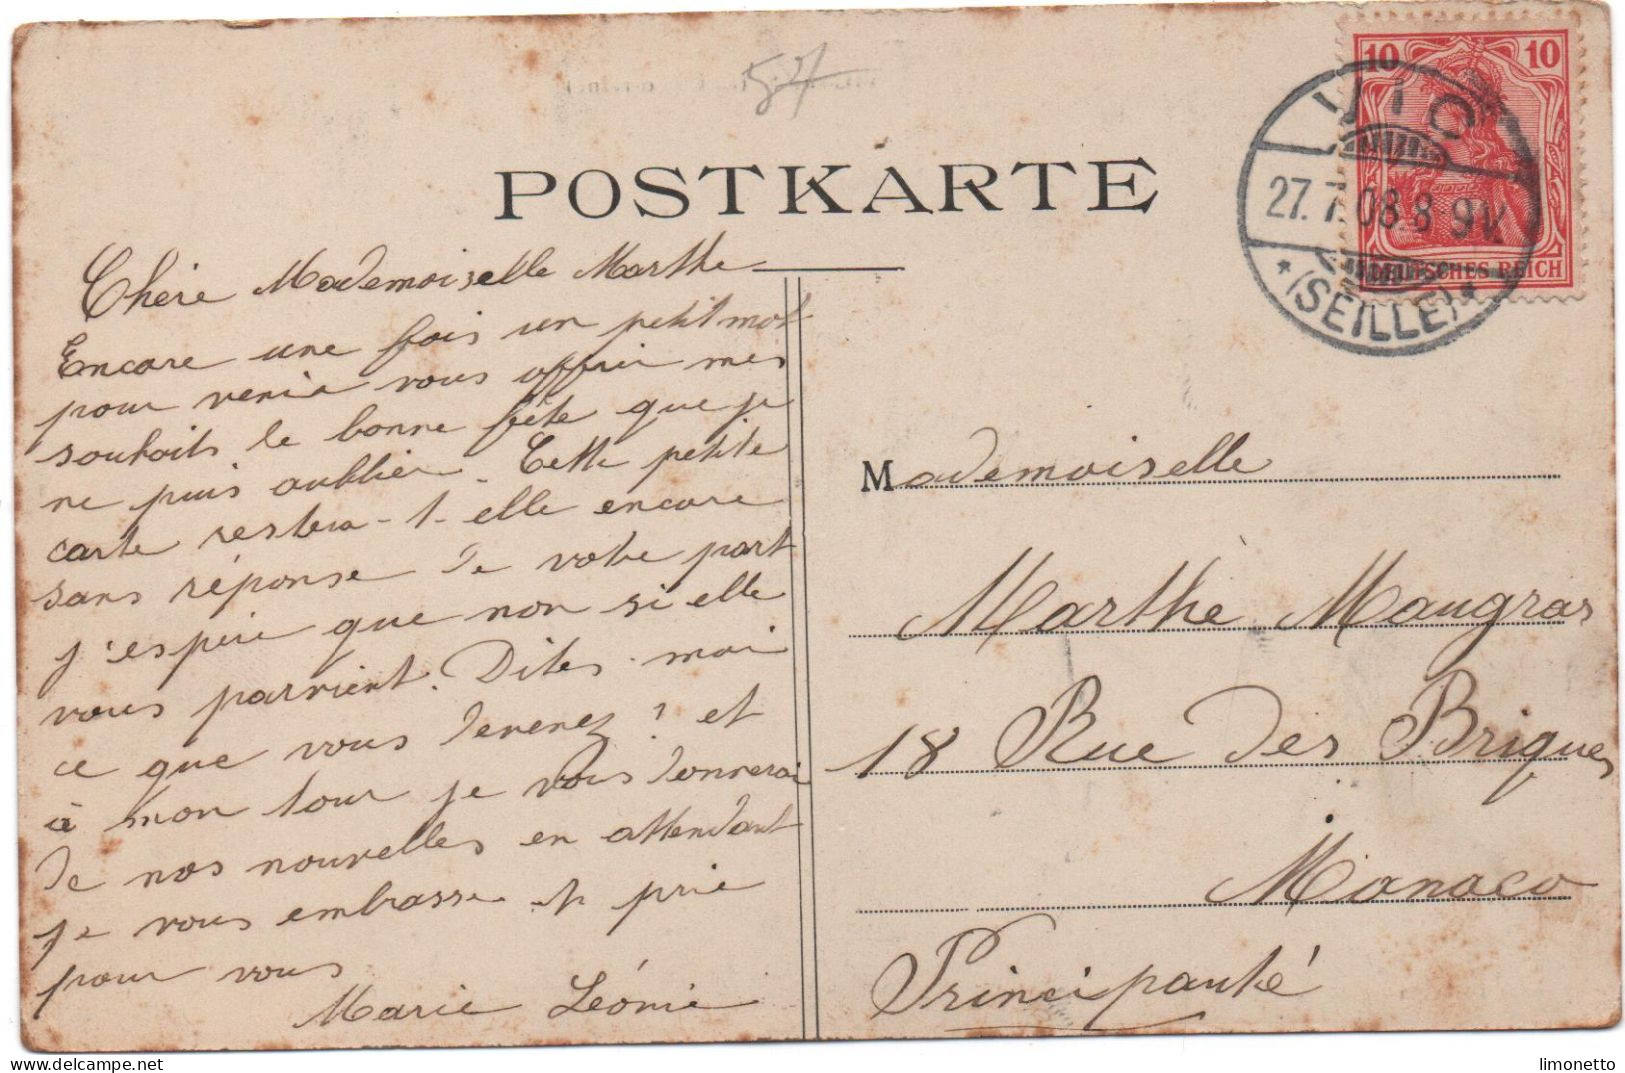 57
POSTKARTE
10 10
DEUTSCHES REICH
VIC
27.7.08. 8-9V.
*(SEILLE)*
Chère Mademoiselle Marthe
Encore une fois un petit mot
pour venir vous offrir mes
souhaits de bonne fête que je
ne puis oublier. Cette petite
carte restera-t-elle encore
sans réponse de votre part
j'espère que non si elle
vous parvient. Dites-moi
ce que vous devenez? et
à mon tour je vous donnerai
de nos nouvelles en attendant
je vous embrasse et prie
pour vous
Marie Léonie
Mademoiselle
Marthe Maugras
18 Rue des Briques
Monaco
Principauté
delcampe.net
limonetto